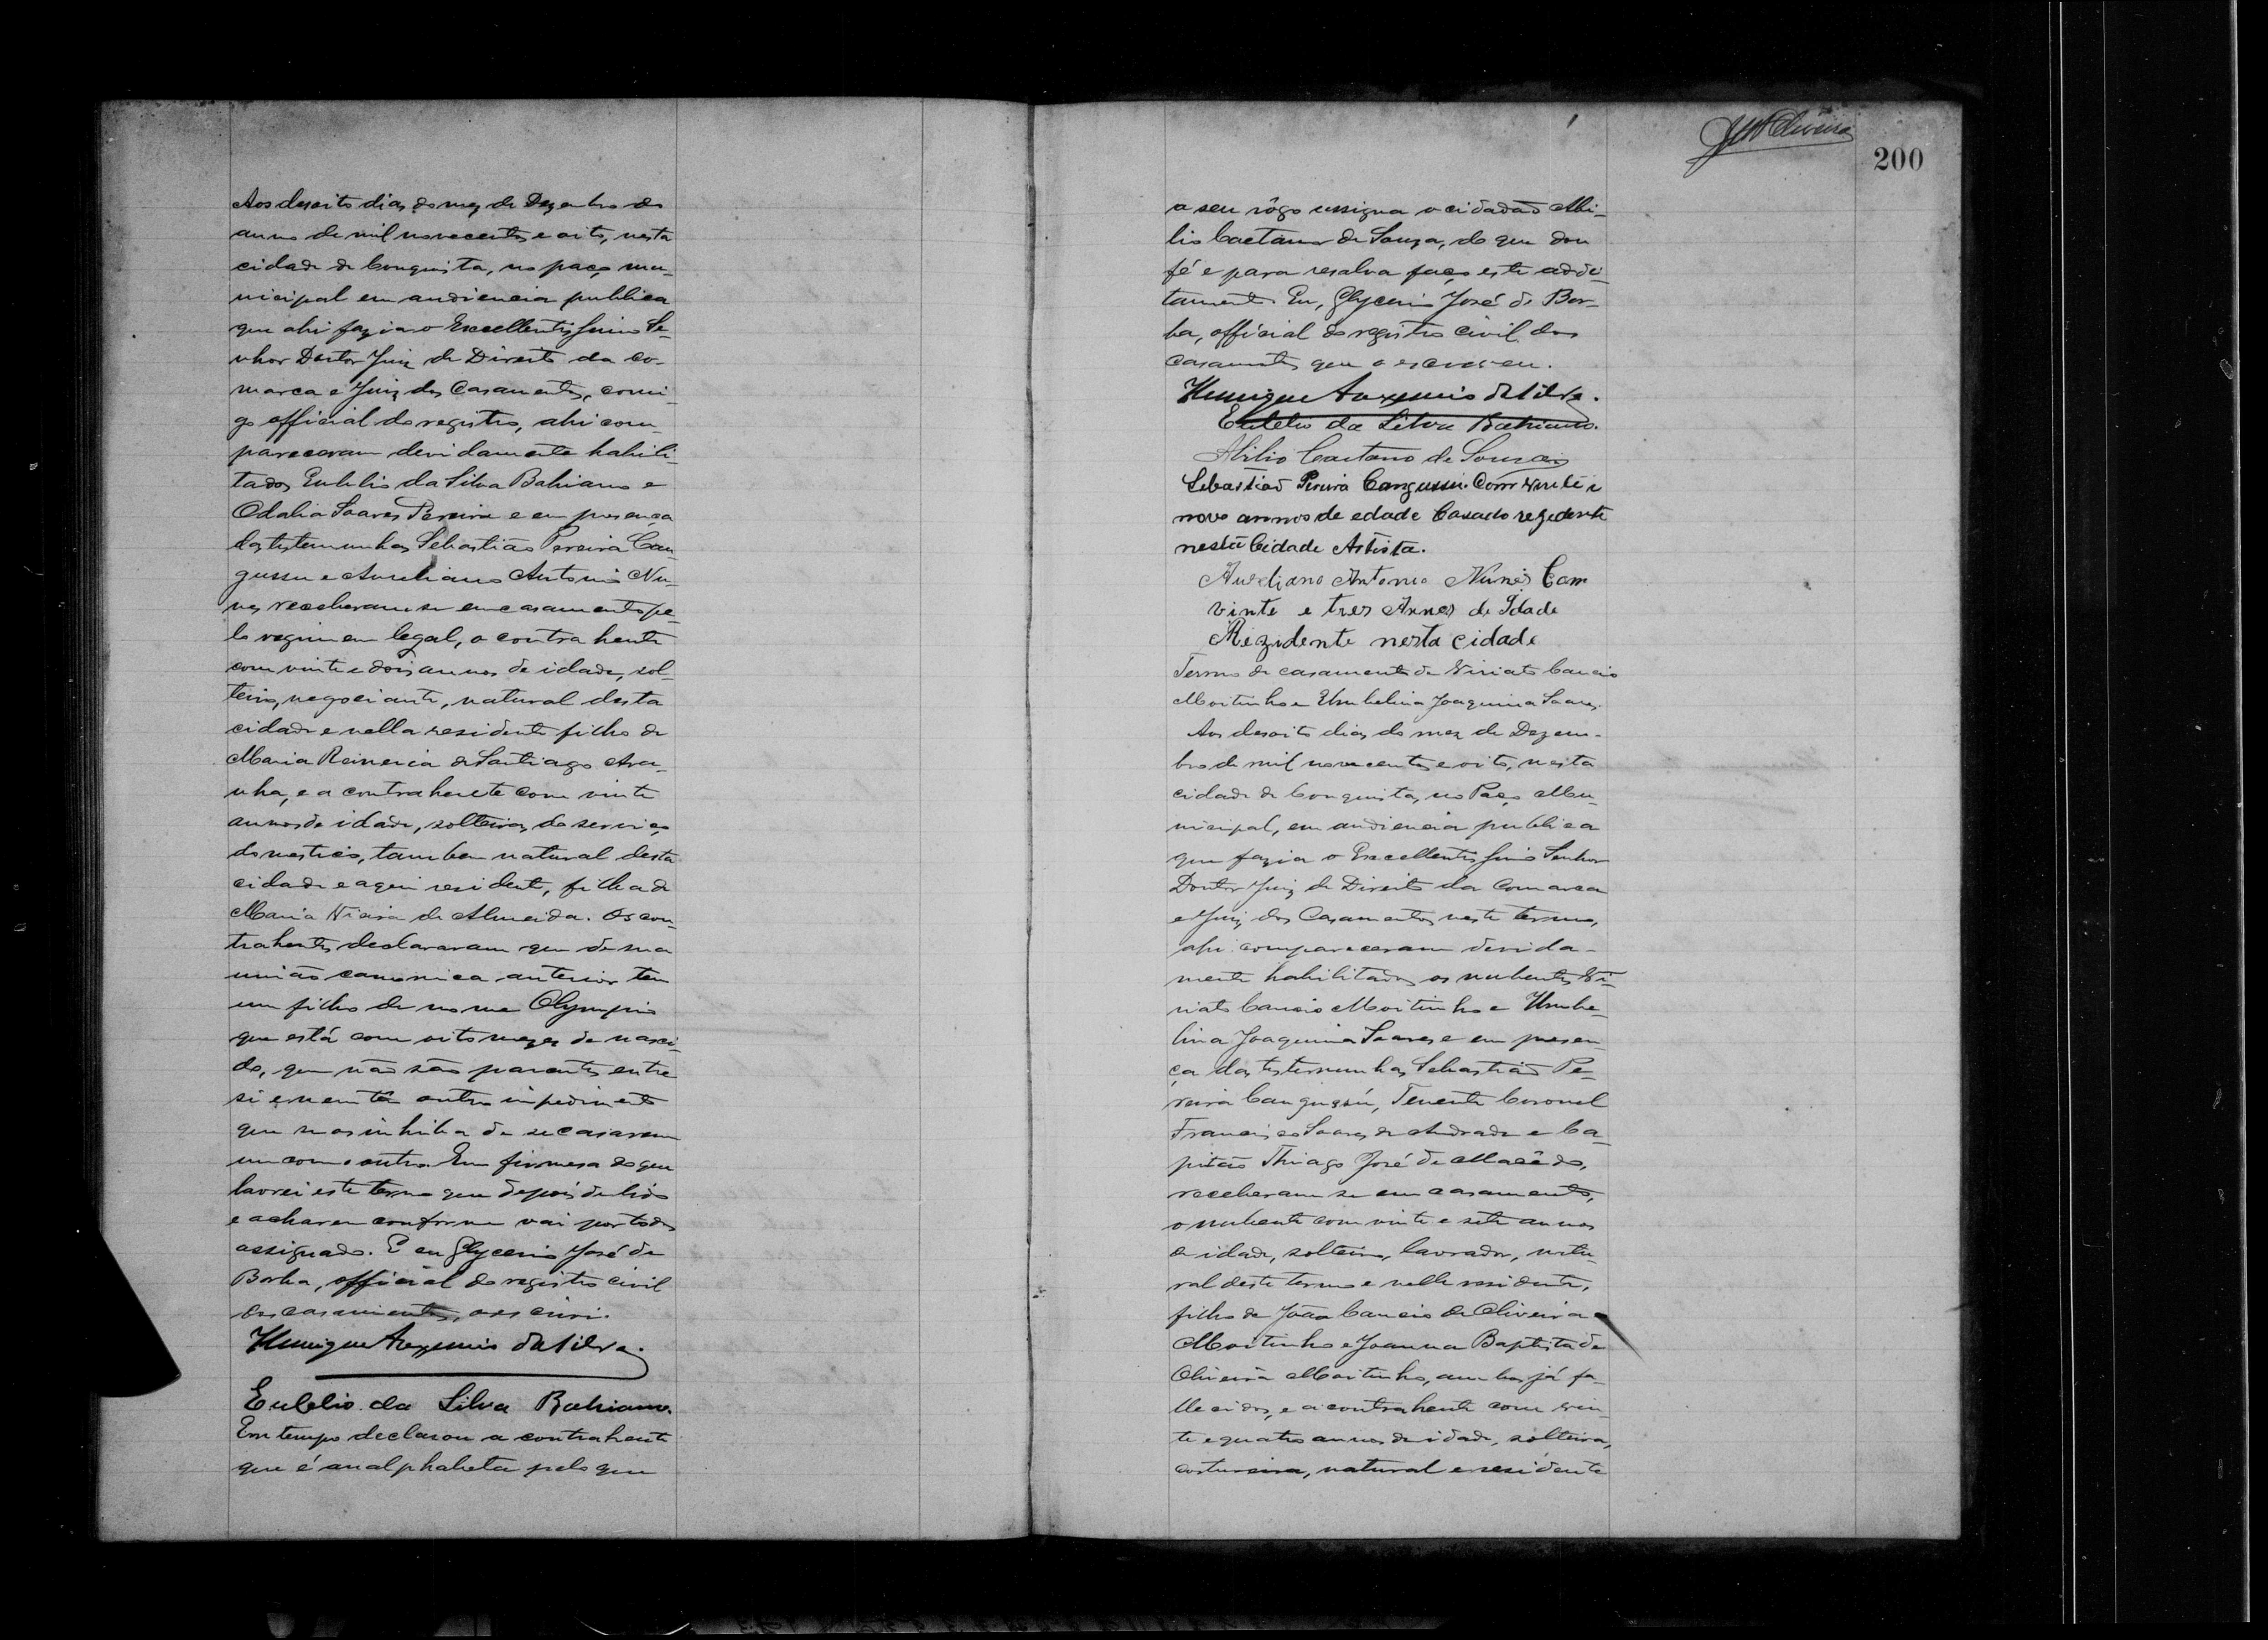 Aos desoito dias do mez de Dezembro do
anno de mil novecentos e oito, nesta
cidade de Conquista, no paço mu-
nicipal em audiencia publica
que ahi fazia o Excellentissimo Se-
nhor Doutor Juiz de Direito da co-
marca e Juiz dos Casamentos, comi-
go official do registro, ahi com-
pareceram devidamente habili-
tados Eulelio da Silva Bahiano e
Odalia Soares Pereira e em presença
das testemunhas Sebastião Pereira Can-
gussu e Aureliano Antonio Nu-
nes receberam se em casamento pe-
lo regimem legal, o contrahente
com vinte e dois annos de idade, sol-
teiro, negociante, natural desta
cidade e nella residente filho de
Maria de Santiago Ara-
nha, e a contrahente com vinte
annos de idade, solteira, do serviço
domestico, tambem natural desta
cidade e aqui residente, filha de
Maria de Almeida. Os con-
trahentes declararam que de sua
união canonica anterior tem
um filho de nome Olympio
que está com oito mezes de nasci-
do, que não são parentes entre
si e nem têm outro impedimento
que nos inhiba de se casarem
um com o outro. Em firmesa do que
lavrei este termo que depois de lido
e acharem conforme vai por todos
assignado. E eu Glycerio José de
Borba, official do registro civil
dos casamentos, o escrivi.
Henrique da Silva.
Eulelio da Silva Bahiano.
Em tempo declarou a contrahente
que é analphabeta pelo que
200
a seu rôgo assigna o cidadão Abi-
lio Caetano de Souza, do que dou
fé e para resalva faço este addi-
tamento Eu, Glycerio José de Bor-
ba, official do registro civil dos
casamentos que o escreveu.
Henrique da Silva.
Eulelio da Silva Bahiano.
Abilio Caetano de Souza
Sebastião Pereira Cangussu. Com vinte i
nove annos de edade Casado rezidente
nesta Cidade Artista.
Aureliano Antonio Nunes Com
vinte e tres Annos de Idade
Rezidente nesta cidade
Termo de casamento de Viriato Cancio
Moitinho e Umbelina Joaquina Soares.
Aos desoito dias do mez de Dezem-
bro de mil novecentos e oito, nesta
cidade de Conquista, no Paço Mu-
nicipal, em audiencia publica
que fazia o Excellentissimo Senhor
Doutor Juiz de Direito da Comarca
e Juiz dos Casamentos neste termo,
ahi compareceram devida-
mente habilitados os nubentes Vi-
riato Cancio Moitinho e Umbe-
lina Joaquina Soares e em presen-
ça das testemunhas Sebastião Pe-
reira Cangussú, Tenente Coronel
Francisco Soares de Andrade e Ca-
pitão Thiago José de Macêdo,
receberam se em casamento,
o nubente com vinte e sete annos
de idade, solteiro, lavrador, natu-
ral deste termo e nelle residente,
filho de João Cancio de Oliveira
Moitinho e Joanna Baptista de
Oliveira Moitinho, ambos já fa-
llecidos, e a contrahente com vin-
te e quatro annos de idade, solteira,
costureira, natural e residente